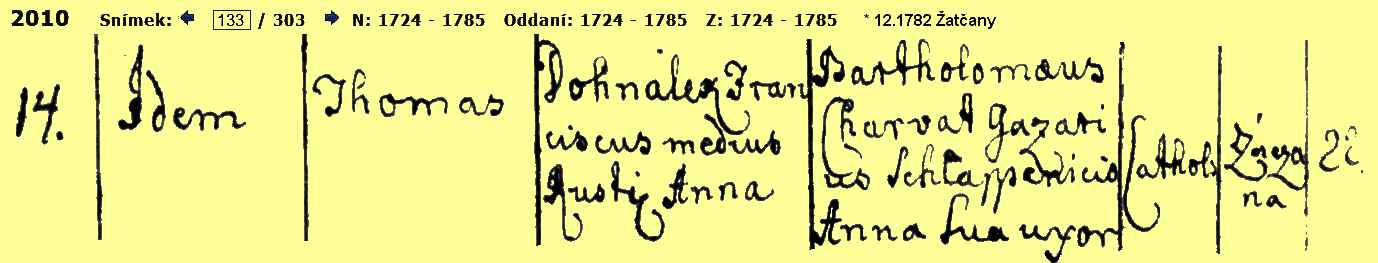 2010 Snímek: 133 / 303 N: 1724 - 1785 Oddaní: 1724 - 1785 Z: 1724 - 1785 * 12.1782 Žatčany
14. Idem Thomas
Dohnálek Fran
ciscus medius
Rusti Anna
Bartholomæus
Charvat Gazari
us Schlappenicis
Anna Sua uxor
Cathol
na